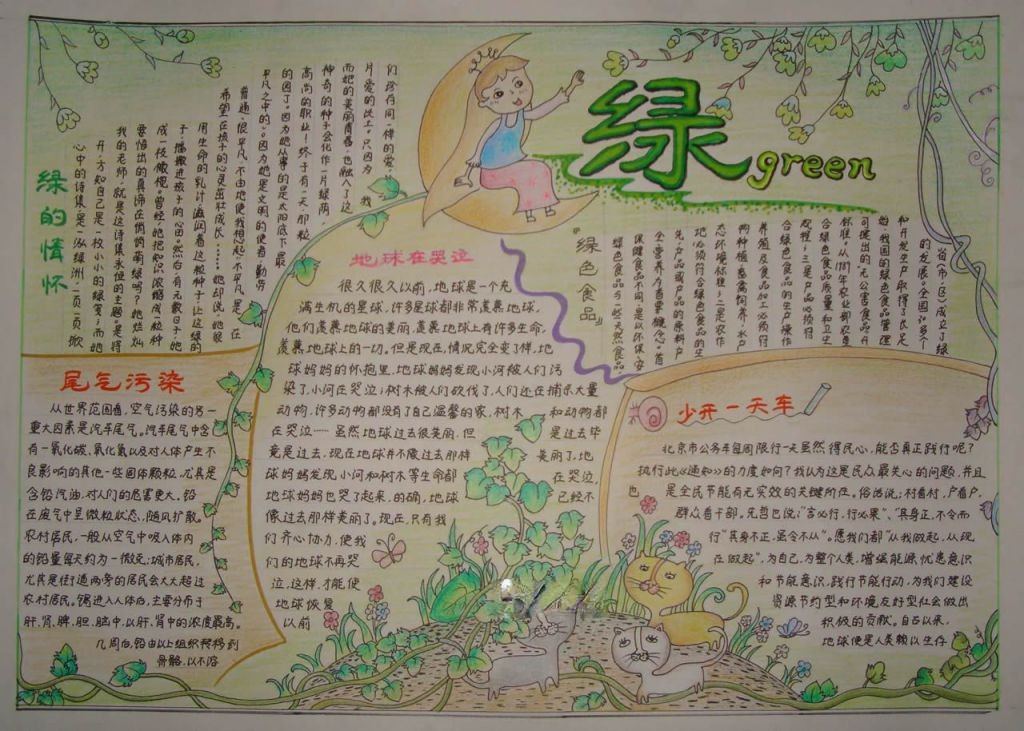 绿 green
绿的情怀
心中的诗集是一泓绿洲,一页一页掀
开,方知自己是一枚小小的绿芽;而她
我的老师,就是这诗集永恒的主题。是得
要悟出的真谛在悄悄萌绿吗?她
成一枚橄榄。曾经,她把知识浓缩成一粒种
子,播撒进孩子的心田。然后,有无数日子她
用生命的乳汁,滋润着这粒种子,让这绿的
希望在孩子的心灵茁壮成长……她却说:她很
普通,很平凡,不由地使我想起:不平凡,是在
平凡之中的。因为她是文明的使者,勤劳
的园丁。因为她从事的是太阳底下最
高尚的职业!终于有一天那粒
神奇的种子会化作一片绿荫,
而她的美丽青春,也融入了这
片爱的沃土。只因为,我
们珍存同一样的爱。
尾气污染
从世界范围看,空气污染的另一
重大因素是汽车尾气。汽车尾气中含
有一氧化碳、氧化氮以及对人体产生不
良影响的其他一些固体颗粒,尤其是
含铅汽油,对人们的危害更大。铅
在废气中呈微粒状态,随风扩散。
农村居民,一般从空气中吸入体内
的铅量每天约为一微克;城市居民,
尤其是街道两旁的居民会大大超过
农村居民。锡进入人体后,主要分布于
肝、肾、脾、胆、脑中,以肝、肾中的浓度最高。
几周后,铅由以上组织转移到
骨骼,以不溶
地球在哭泣
很久很久以前,地球是一个充
满生机的星球,许多星球都非常羡慕地球,
他们羡慕地球的美丽,羡慕地球上有许多生命,
羡慕地球上的一切。但是现在,情况完全变了样,地
球妈妈的怀抱里,地球妈妈发现小河被人们污
染了,小河在哭泣;树木被人们砍伐了,人们还在捕杀大量
动物,许多动物都没有了自己温馨的家,树木 和动物都
在哭泣……虽然地球过去很美丽,但 是过去毕
竟是过去。现在地球并不像过去那样 美丽了,地
球妈妈发现小河和树木等生命都 在哭泣,
地球妈妈也哭了起来。的确,地球 已经不
像过去那样美丽了。现在,只有我
们齐心协力,使我
们的地球不再哭
泣,这样,才能使
地球恢复
以前
『绿色食品』
绿色食品与一些天然食品、
保健食品不同,是以环保、安
全、营养为首要概念。首
先,产品或产品的原料产
地必须符合绿色食品的生
态环境标准;二是农作
两种植、畜禽饲养、水产
养殖及食品加工必须符
合绿色食品的生产操作
规程;三是产品必须符
合绿色食品质量和卫生
标准。从1989年农业部首
可提出的无公害食品开
始,我国的绿色食品管理
和开发生产取得了长足
的发展。全国30多个
省(市、区)成立了绿
少开一天车
北京市公务车每周限行一天虽然得民心,能否真正践行呢?
执行此《通知》的力度如何?我认为这是民众最关心的问题,并且
也 是全民节能有无实效的关键所在。俗话说:村看村,户看户,
群众看干部。先哲也说:“言必行,行必果”、“其身正,不令而
行”“其身不正,虽令不从”。愿我们都“从我做起,从现
在做起”,为自己,为整个人类,增强能源忧患意识
和节能意识,践行节能行动,为我们建设
资源节约型和环境友好型社会做出
积极的贡献。自古以来,
地球便是人类赖以生存